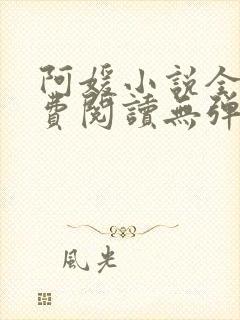 阿媛小说全
費閱讀無彈
風光